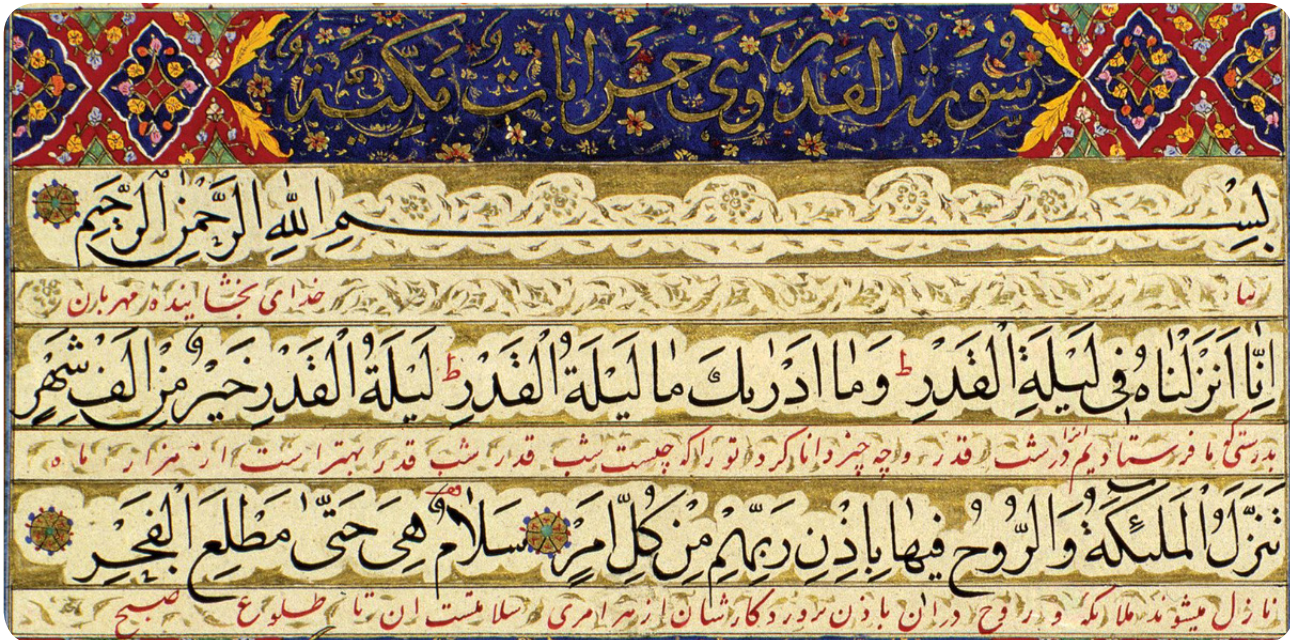 سورة القدر وهی خمس اٰیات مکیة
بِسْمِ اللّٰهِ الرَّحْمٰنِ الرَّحِیمِ
خدای بخشاینده مهربان
اِنَّا اَنْزَلْنَاهُ فِی لَیْلَةِ الْقَدْرِ ط وَمٰا اَدْرٰیكَ مٰا لَیْلَةُ الْقَدْرِ ط لَیْلَةُ الْقَدْرِ خَیْرٌ مِنْ اَلْفِ شَهْرٍ
بدرستی که ما فرستادیم انرا در شب قدر و چه چیز دانا کرد تو را که چیست شب قدر شب قدر بهتر است از هزار ماه
تَنَزَّلُ الْمَلٰئِكَةُ وَالرُّوحُ فِیهٰا بِاِذْنِ رَبِّهِمْ مِنْ كُلِّ اَمْرٍ سَلٰامٌ هِیَ حَتّٰی مَطْلَعِ الْفَجْرِ
نازل میشوند ملائکه و روح در ان باذن پروردکارشان از هر امری سلامتست ان تا طلوع صبح